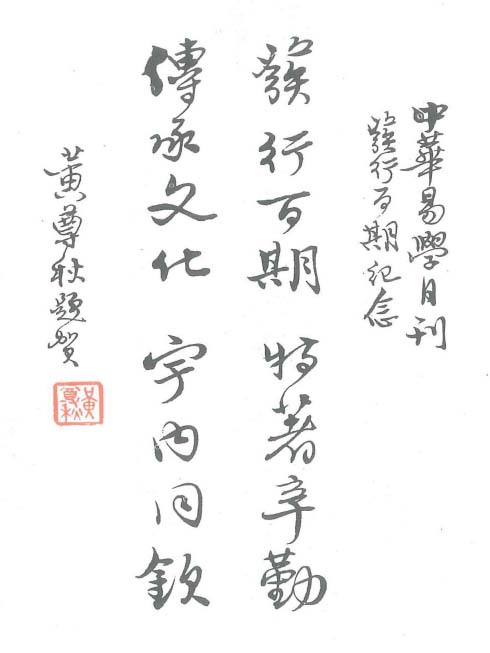 中華易學月刊
發行百期紀念
發行百期 特著辛勤
傳承文化 宇內同欽
黃尊秋題賀
黃尊秋